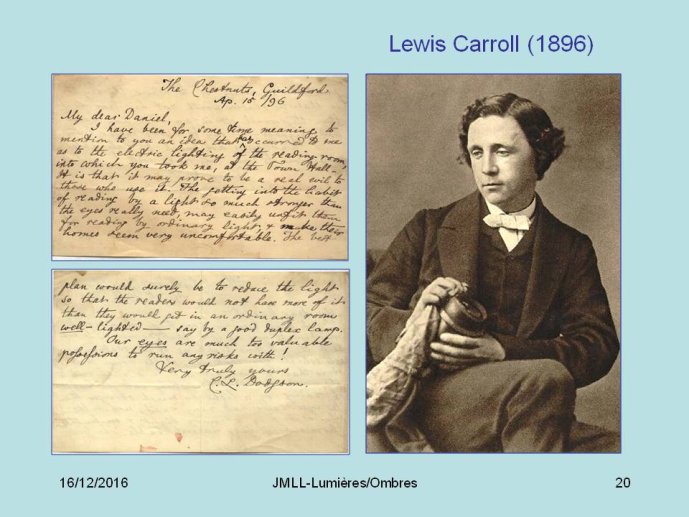 Lewis Carroll (1896)
The Chestnuts, Guildford.
Ap. 15 /96
My dear Daniel,
I have been for some time meaning to
mention to you an idea that has occurred to me
as to the electric lighting of the reading-room
into which you took me, at the Town Hall-
It is that it may prove to be a real evil to
those who use it. The getting into the habit
of reading by a light so much stronger than
the eyes really need, may easily unfit them
for reading by ordinary light, & make their
homes seem very uncomfortable. The best
plan would surely be to reduce the light
so that the readers would not have more of it
than they would get in an ordinary room
well-lighted — say by a good duplex lamp.
Our eyes are much too valuable
possessions to run any risks with!
Very truly yours
C. L. Dodgson.
16/12/2016
JMLL-Lumières/Ombres
20